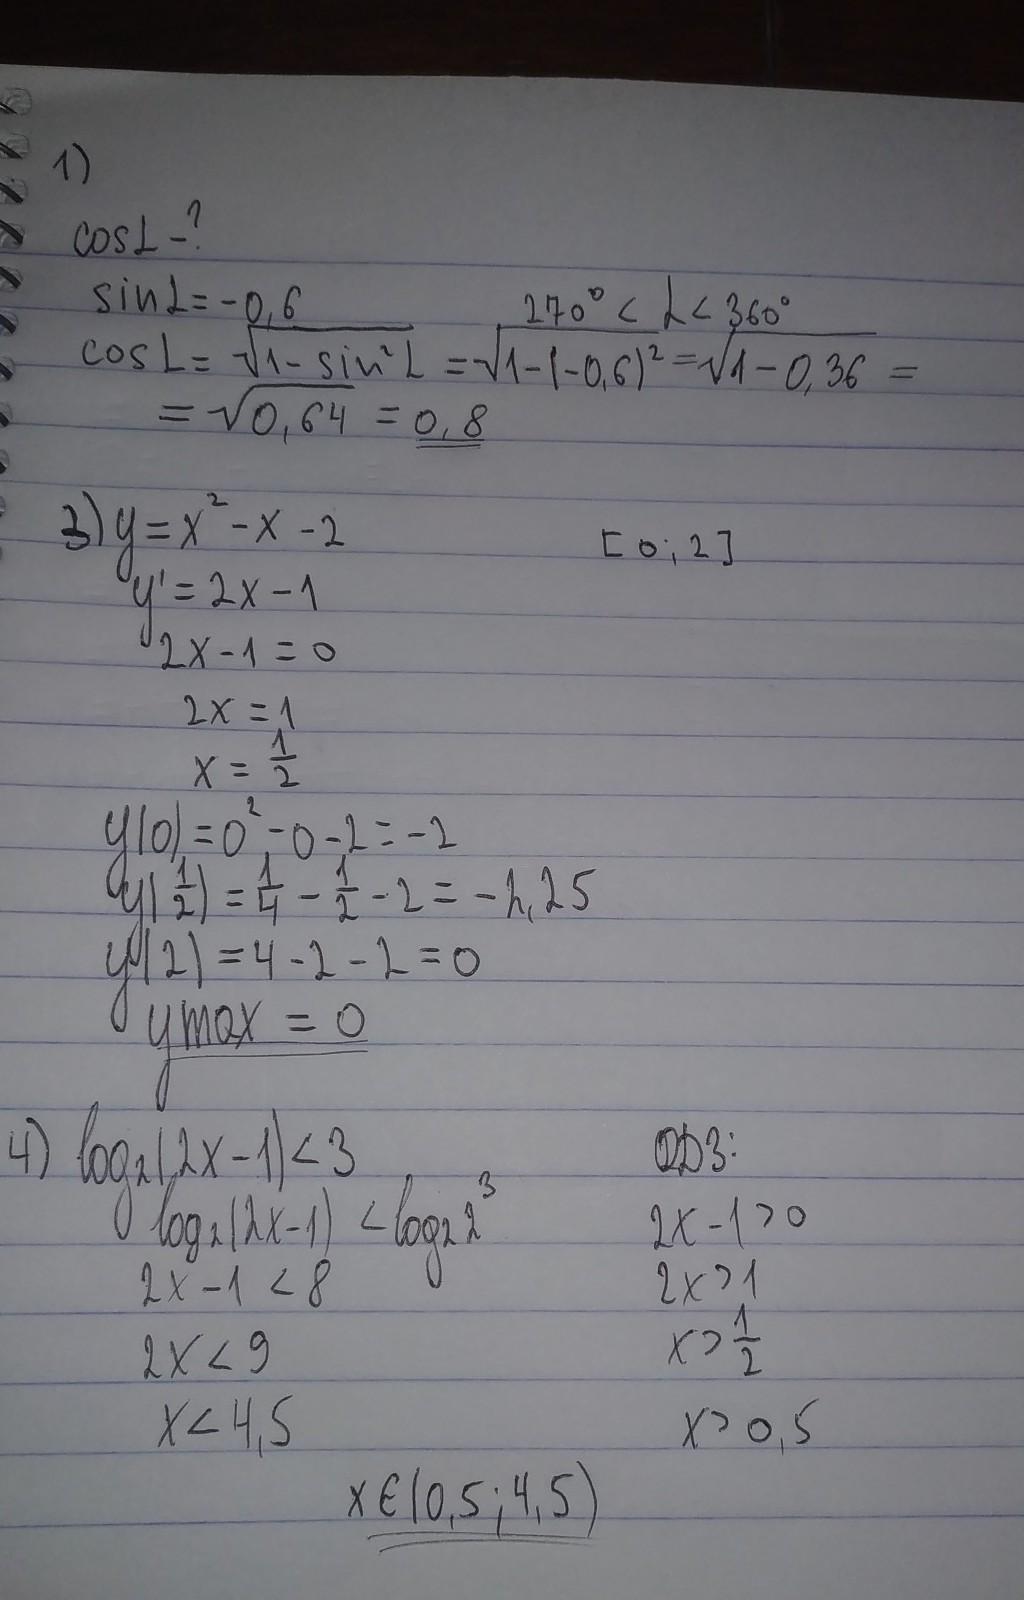 1)
cosL-?
sinL=-0,6 270°<L<360°
cosL=√1-sin²L=√1-(-0,6)²=√1-0,36=
=√0,64=0,8
3)y=x²-x-2 [0;2]
y'=2x-1
2x-1=0
2x=1
x=1/2
y(0)=0²-0-2=-2
y(1/2)=1/4-1/2-2=-2,25
y(2)=4-2-2=0
ymax=0
4) log₂(2x-1)<3 ОДЗ:
log₂(2x-1)<log₂2³ 2x-1>0
2x-1<8 2x>1
2x<9 x>1/2
x<4,5 x>0,5
x∈(0,5;4,5)